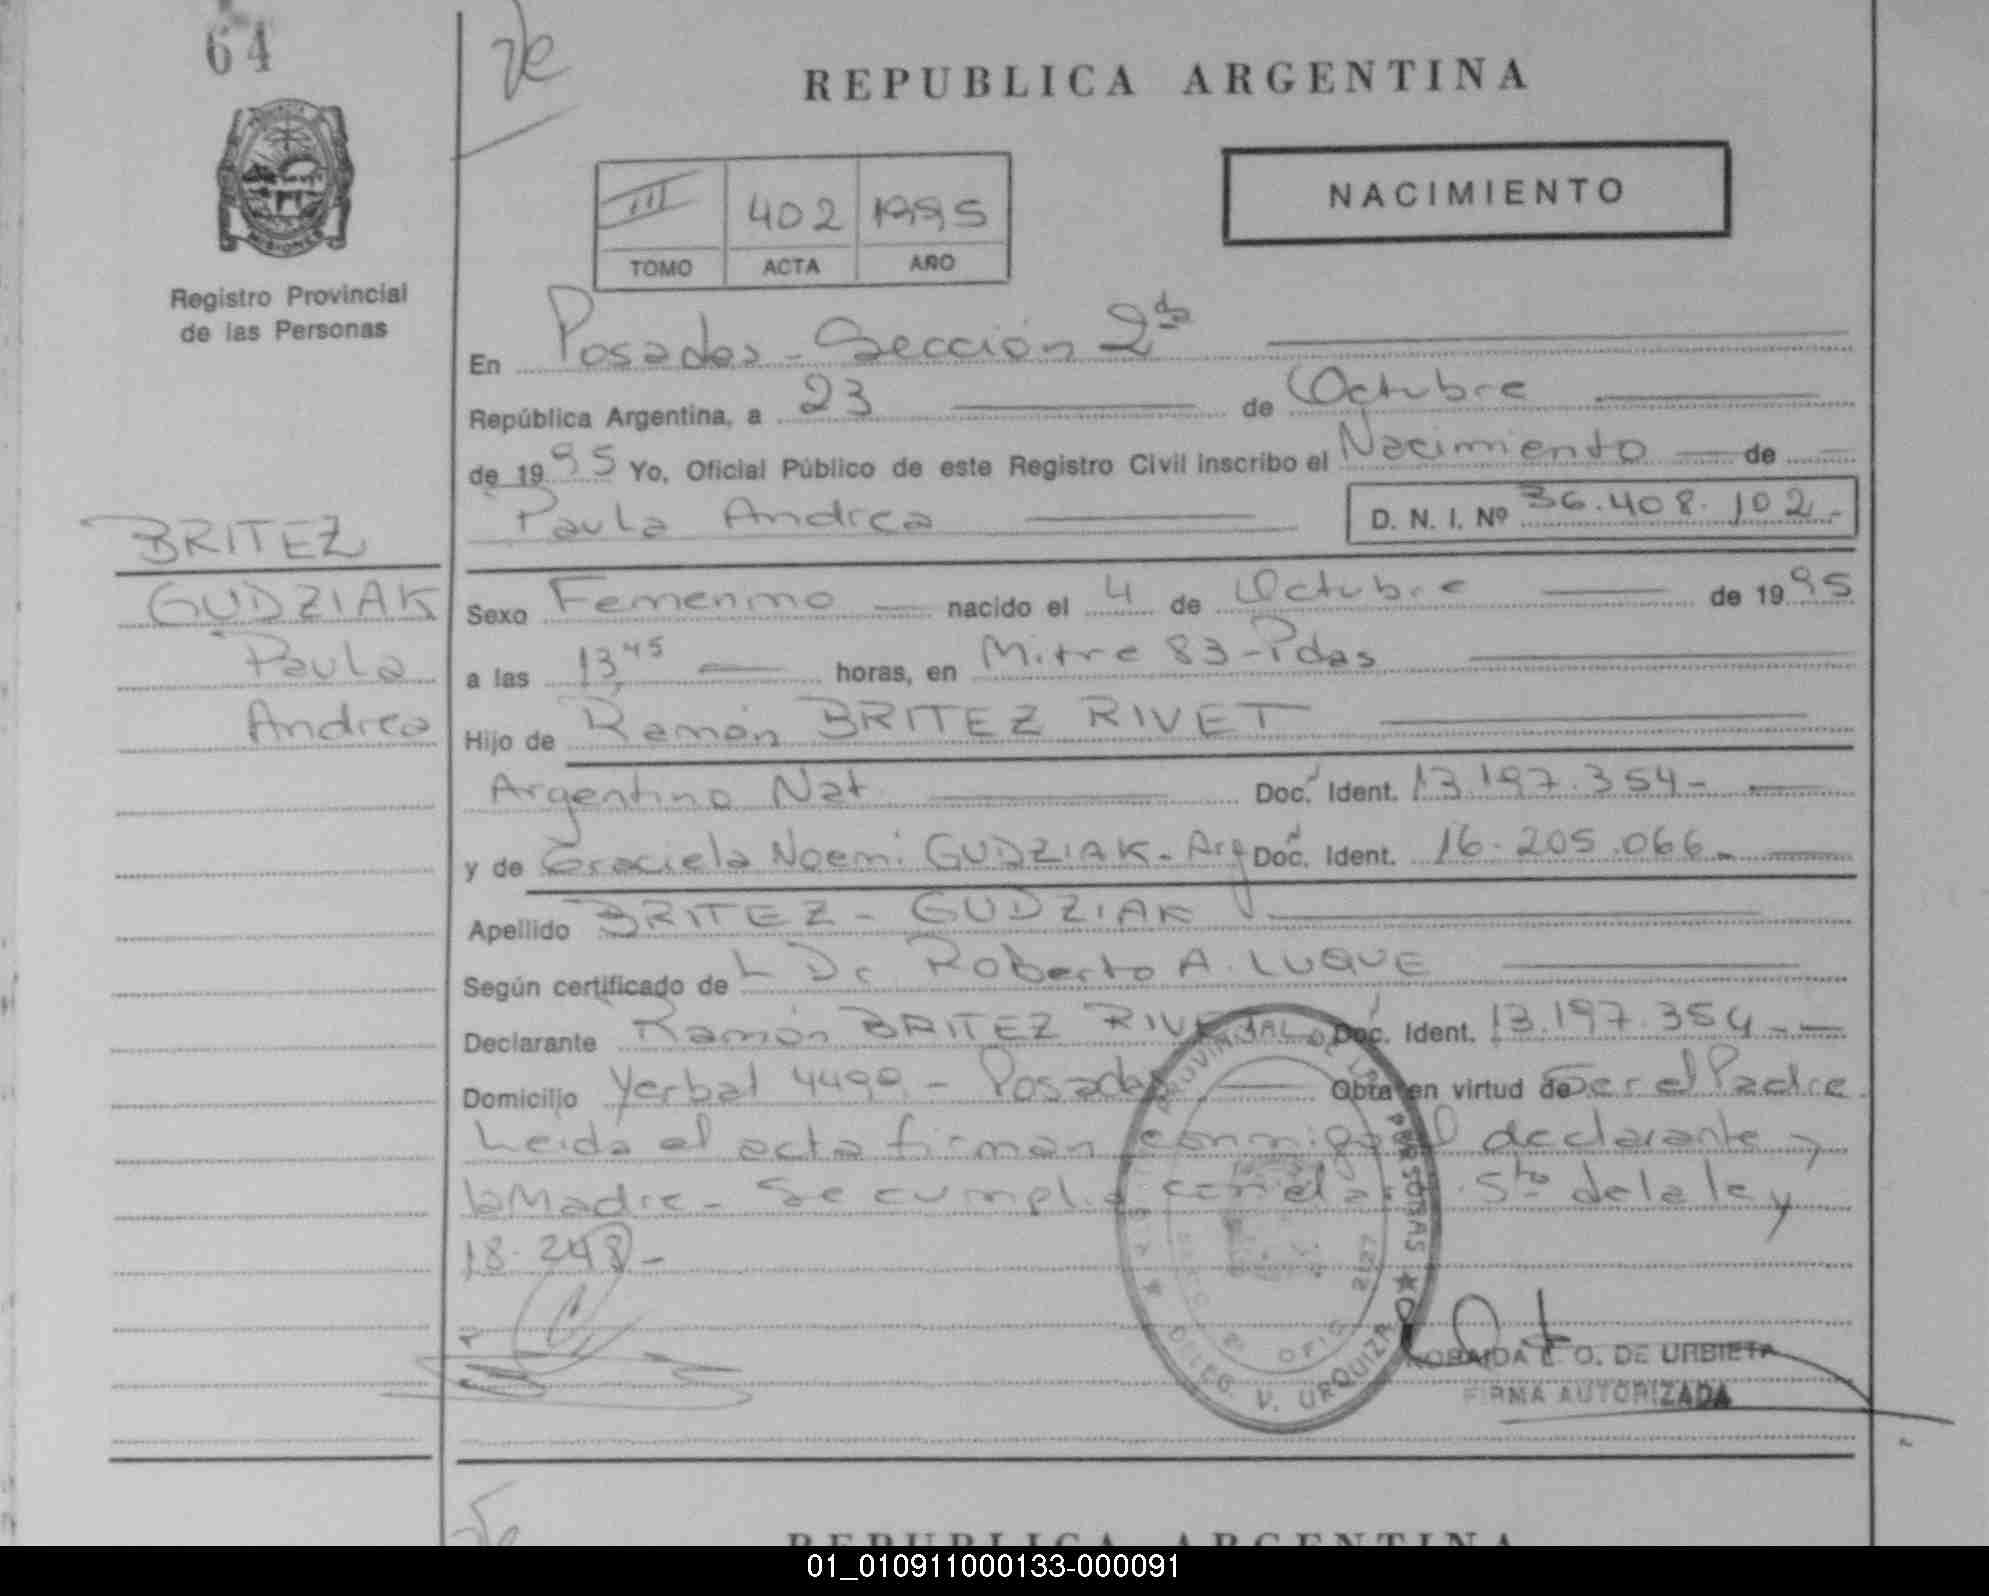 64
REPUBLICA ARGENTINA
NACIMIENTO
III 402 1995
TOMO ACTA AÑO
MISIONES
Registro Provincial
de las Personas
En Posadas - Sección 2da
República Argentina, a 23 de Octubre
de 1995 Yo, Oficial Público de este Registro Civil inscribo el Nacimiento de
Paula Andrea D. N. I. Nº 36.408.102-
BRITEZ
GUDZIAK
Paula
Andrea
Sexo Femenino nacido el 4 de Octubre de 1995
a las 13,45 horas, en Mitre 83-Pdas
Hijo de Ramón BRITEZ RIVET
Argentino Nat. Doc. Ident. 13.197.354-
y de Graciela Noemi GUDZIAK- Arg Doc. Ident. 16.205.066-
Apellido BRITEZ - GUDZIAK
Según certificado de L Dr Roberto A. LUQUE
Declarante Ramón BRITEZ RIVET Doc. Ident. 13.197.354-
Domicilio Yerbal 4499 - Posadas Obra en virtud de Ser el Padre.
Leida el acta firman conmigo el declarante y
la Madre- Se cumplió con el art. 5to de la ley
18.248-
PROVINCIAL DE LAS PERSONAS
DELEG. V. URQUIZA
OFIC 2127
E. O. DE URBIETA
FIRMA AUTORIZADA
REPUBLICA ARGENTINA
01_010911000133-000091